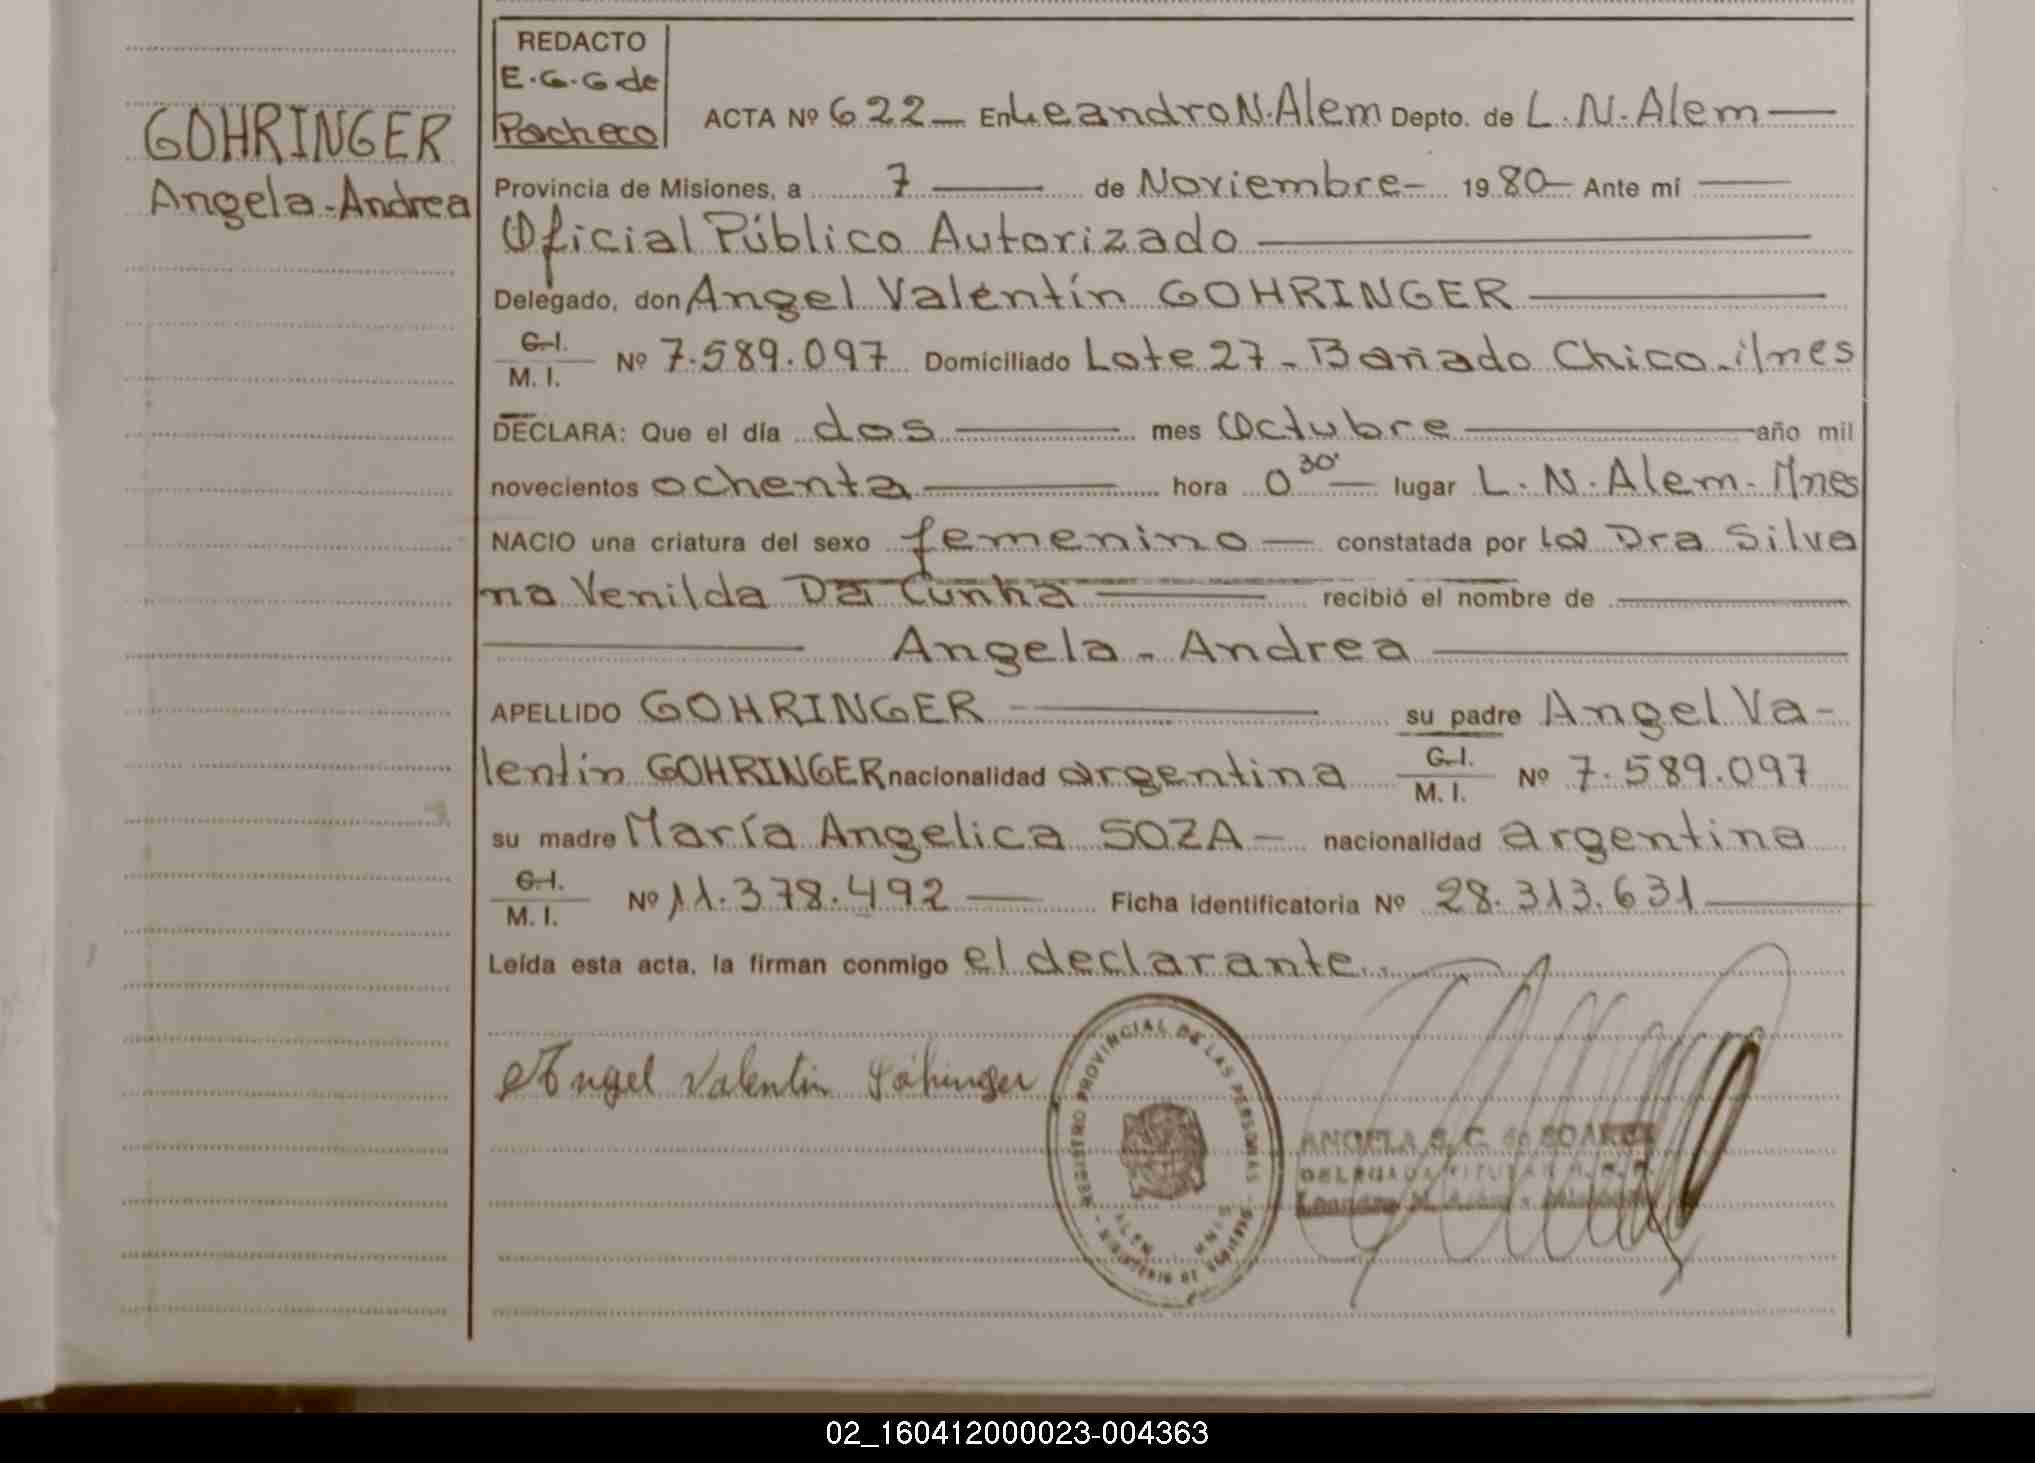 GOHRINGER
Angela-Andrea
REDACTO
E.G.G de
Pacheco
ACTA Nº 622 — En Leandro N. Alem Depto. de L. N. Alem —
Provincia de Misiones, a 7 — de Noviembre - 1980 — Ante mí —
Oficial Público Autorizado —
Delegado, don Angel Valentín GOHRINGER —
C.I.
M. I. Nº 7.589.097 Domiciliado Lote 27 - Bañado Chico - Mnes
DECLARA: Que el día dos — mes Octubre — año mil
novecientos ochenta — hora 0 30' — lugar L. N. Alem - Mnes
NACIO una criatura del sexo femenino — constatada por la Dra Silva
na Venilda Da Cunha — recibió el nombre de —
— Angela - Andrea —
APELLIDO GOHRINGER — su padre Angel Va-
lentín GOHRINGER nacionalidad argentina C.I.
M. I. Nº 7.589.097
su madre María Angelica SOZA — nacionalidad argentina
C.I.
M. I. Nº 11.378.492 — Ficha identificatoria Nº 28.313.631 —
Leída esta acta, la firman conmigo el declarante.
Angel Valentin Göhringer
REGISTRO PROVINCIAL DE LAS PERSONAS - MINISTERIO DE GOBIERNO
ALEM MNES
ANGELA S. C. de SOAREZ
DELEGADA TITULAR R. P. P.
Leandro N. Alem - Misiones
02_160412000023-004363